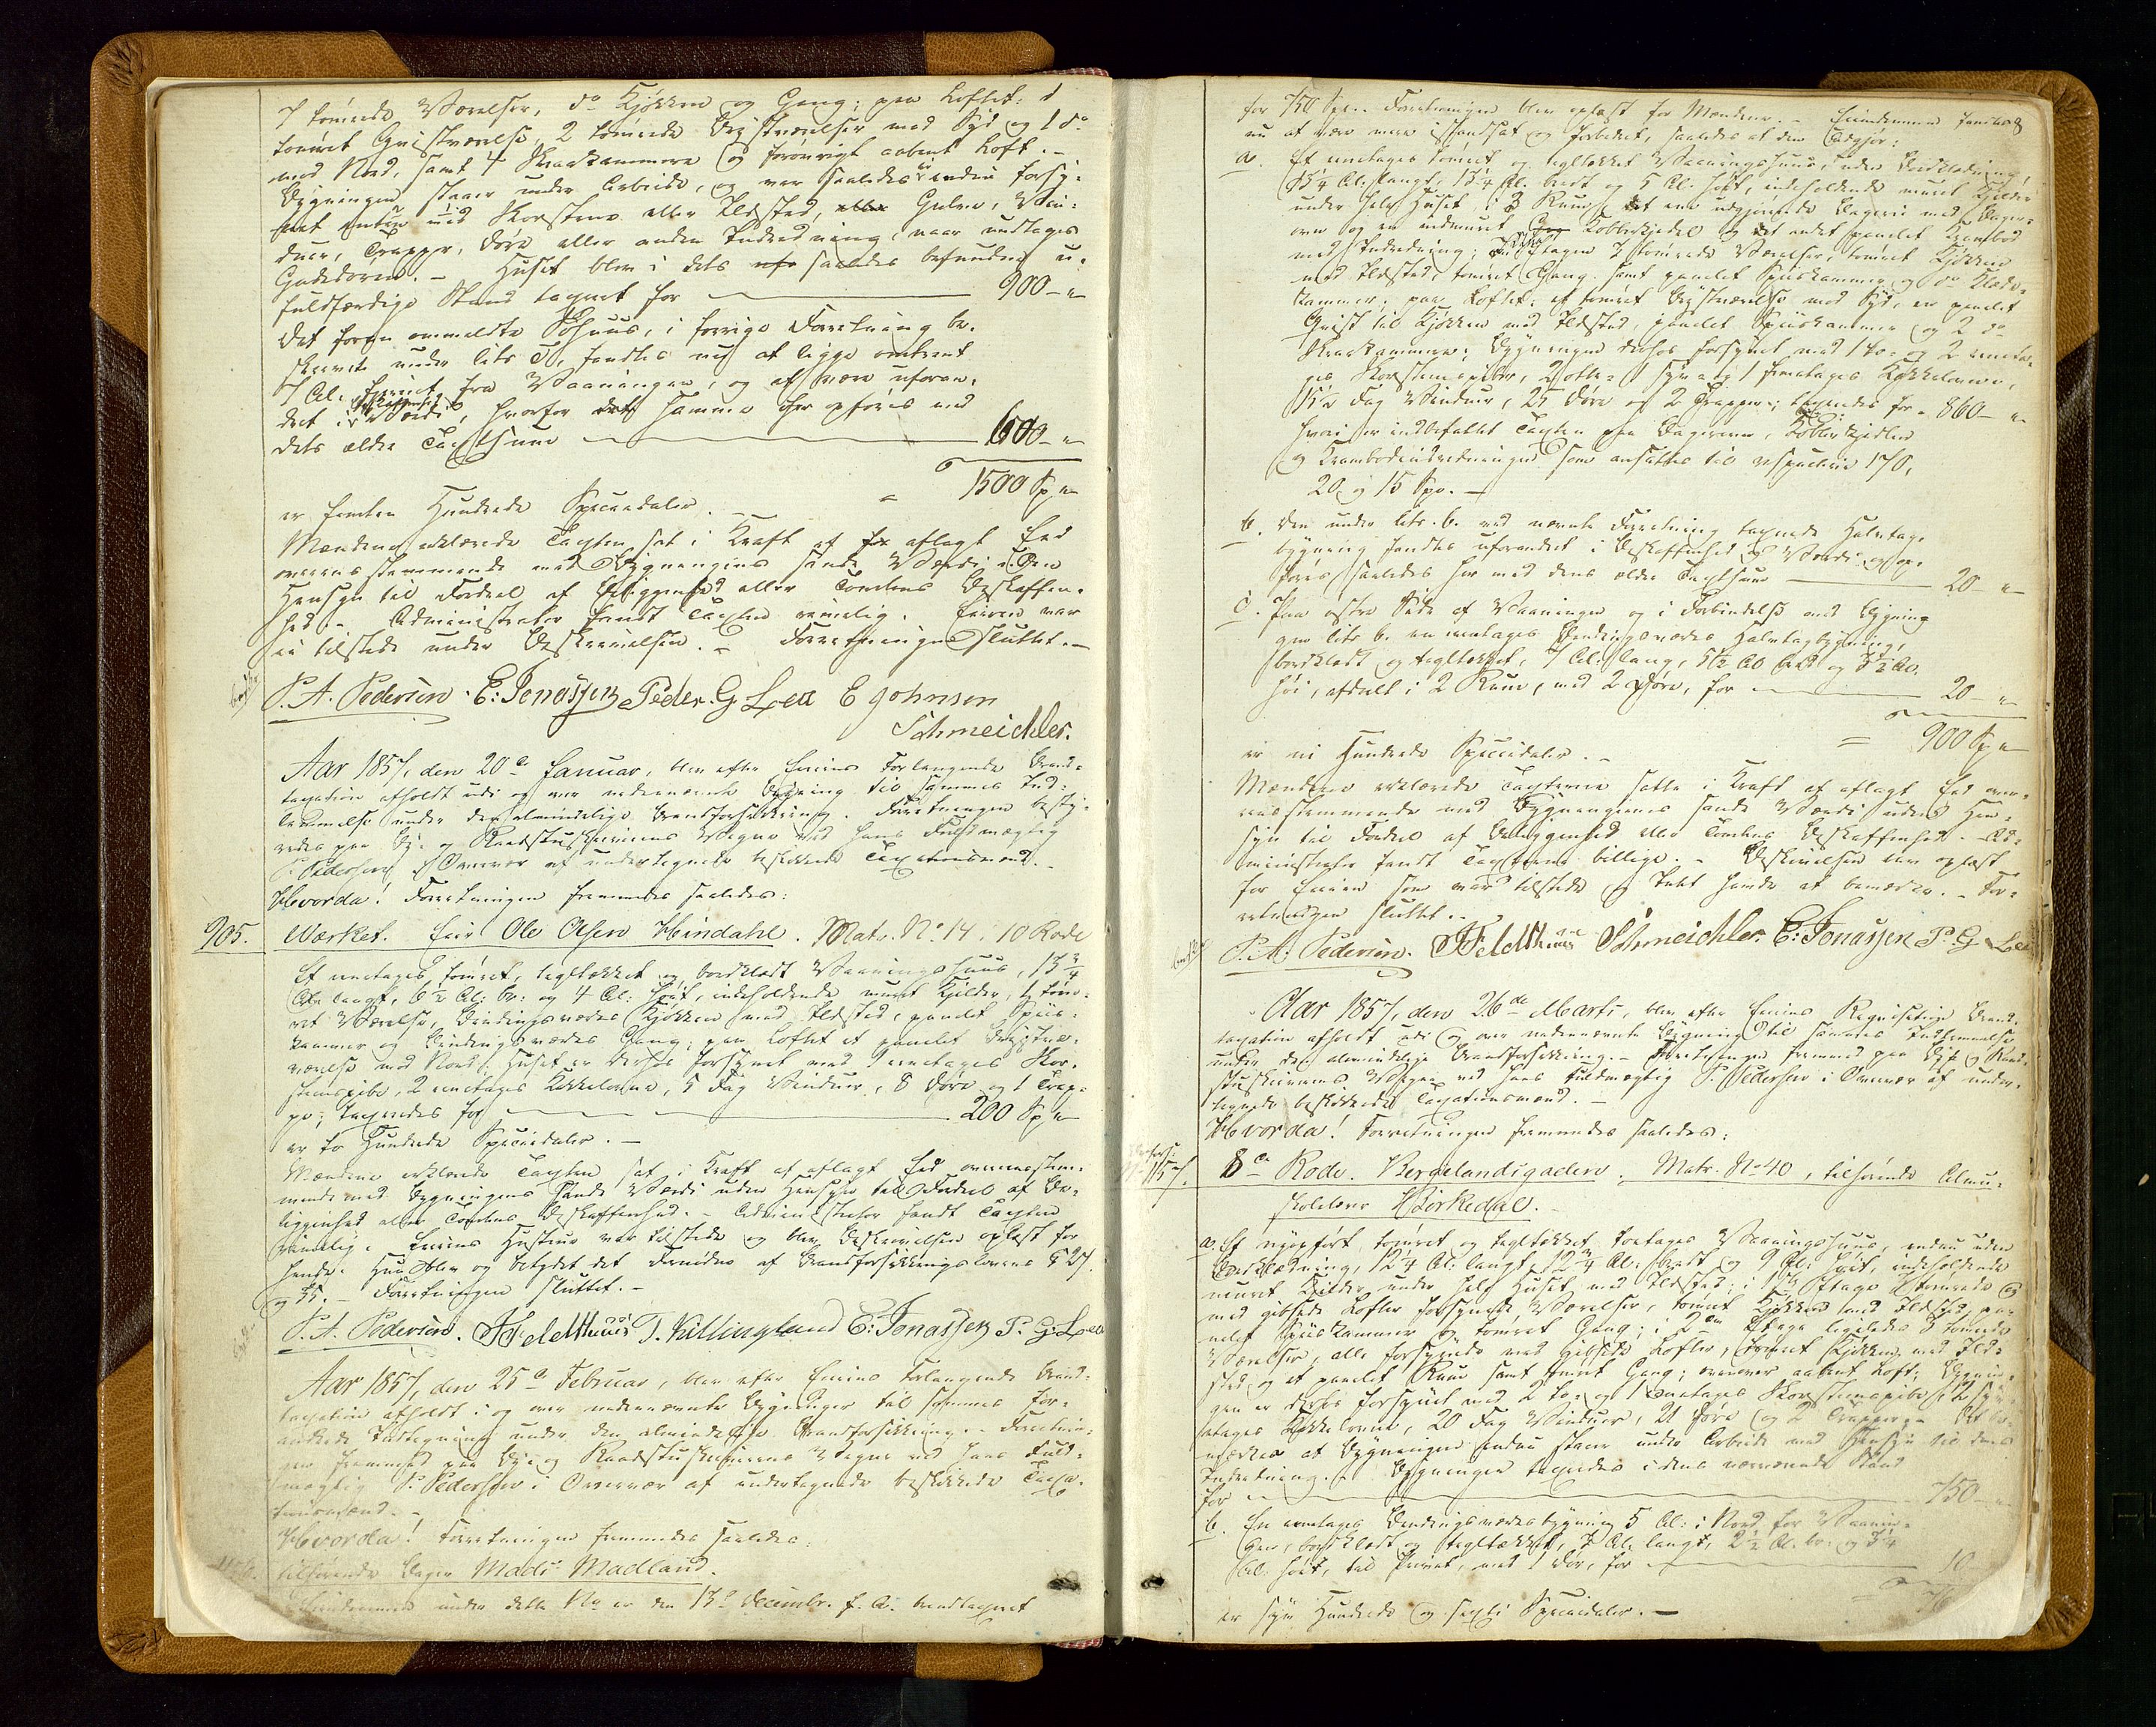 7 tømrede Værelser, do Kjøkken og Gang; paa Loftet: 1
tømret Qvistværelse, 2 tømrede Qvistværelser mod Syd og 1 do
mod Nord, samt 4 Skraakammere og forøvrigt aabent Loft. -
Bygningen staaer under Arbeide, og var saaledes ei endnu forsy-
net enten med Skorstene eller Ildsted, eller Gulve, Vin-
duer, Trapper, Døre eller anden Indredning, naar undtages
Gadedøren. - Huset blev i dets saaledes befundne u-
fuldfærdige Stand taxeret for 900 - "
Det foran ommeldte Søhuus, i forrige Forretning be-
skrevet under litr , fandtes nu at ligge omtrent
7 Al. fra Vaaningen, og at være uforan-
dret i Beskaffenhed Værdi, hvorfor det samme her opføres med
dets ældre Taxtsum 600 - "
= 1500 Sp "
er femten Hundrede Speciedaler. -
Mændene erklærede Taxten sat i Kraft af aflagt Eed
overensstemmende med Bygningens sande Værdi uden
Hensyn til Fordeel af Beliggenhed eller Tomtens Beskaffen-
hed. - Administrator fandt Taxten rimelig. Eieren var
ei tilstede under Beskrivelsen. - Forretningen sluttet. -
P. A. Pedersen. E: Jonassen Peder. G. Lea E Johnsen
Schmeichler.
Aar 1857, den 20de Januar, blev efter Eierens Forlangende Brand-
taxation afholdt udi og over nedennævnte Bygning til sammes Ind-
lemmelse under den almindelige Brandforsikkring. Forretningen besty-
redes paa By- og Raadstueskriverens Vegne ved hans Fuldmægtig
P. Pedersen i Overvær af undertegnede beskikkede Taxationsmænd. -
Hvorda! Forretningen fremmedes saaledes:
905. Værket. Eier Ole Olsen Hindahl. Matr. No. 14. 10 Rode
Et eenetages tømret, tegltækket og bordklædt Vaaningshuus, 13 3/4
Al. langt, 6 1/2 Al: br: og 4 Al: høit, indeholdende muret Kjelder, 1 tøm-
ret Værelse, Bindingsværks Kjøkken med Ildsted, panelet Spiis-
kammer og Bindingsværks Gang; paa Loftet et panelet Qvist-
værelse mod Nord; Huset er derhos forsynet med 1 eenetages Skor-
steenspibe, 2 eenetages Kakkelovne, 5 Fag Vinduer, 8 Døre og 1 Trap-
pe; taxeredes for 200 Sp "
er to Hundrede Speciedaler. -
Mændene erklærede Taxten sat i Kraft af aflagt Eed overeensstem-
mende med Bygningens sande Værdi uden Hensyn til Fordeel af Be-
liggenhed eller Tomtens Beskaffenhed. - Administrator fandt Taxten
rimelig. Eierens Hustrue var tilstede og blev Beskrivelsen oplæst for
hende. Hun blev og betydet det Fornødne af Brandforsikkringslovens § 27
og 35. - Forretningen sluttet. -
P. A. Pedersen. T. Killingland E: Jonassen P. G. Lea
Aar 1857, den 25de Februar, blev efter Eierens Forlangende Brand-
taxation afholdt i og over nedennævnte Bygninger til sammes for-
andrede Indtegning under den almindelige Brandforsikkring. - Forretnin-
gen fremmed paa By- og Raadstueskriverens Vegne ved hans Fuld-
mægtig P. Pedersen i Overvær af undertegnede beskikkede Taxa-
tionsmænd. -
Hvorda! Forretningen fremmedes saaledes:
tilhørende Bager Mads Madland.
Eiendommen under dette No er den 13de Decembr. f. A. brandtaxeret
for 750 Spd. Forretningen blev oplæst for Mændene. - Eiendommen fandtes
nu at være mere istandsat og forbedret, saaledes at den udgjør:
a. Et eenetages tømret og tegltækket Vaaningshuus, uden Bordklædning,
15 1/4 Al. langt, 13 1/4 Al. bredt og 5 Al. høit, indeholdende muret Kjelder
under hele Huset, i 3 Rum, det ene udgjørende Bageri med Bager-
ovn og en indmuret Kobberkjedel og det andet panelet Krambod
med Indredning; i Etagen 7 tømrede Værelser, tømret Kjøkken
med Ildsted, tømret Gang samt panelet Spiiskammer og do Klæde-
kammer; paa Loftet: et tømret Qvistværelse mod Syd, en panelet
Qvist til Kjøkken med Ildsted, panelet Spiiskammer og 2 do
Skraakammere; Bygningen derhos forsynet med 1 to- og 2 eeneta-
ges Skorsteenspiber, 2 otte- 1 syv- og 1 fireetages Kakkelovne,
15 1/2 Fag Vinduer, 25 Døre og 2 Trapper; taxeredes for - 860 - "
hvori er indbefattet Taxten paa Bagerovnen, Kobberkjedlen
og Krambodindredningen som ansattes til respective 170,
20 og 15 Spd. -
b. Den under litr. b. ved nævnte Forretning taxerede Halvtags-
bygning fandtes uforandret i Beskaffenhed og Værdi og op-
føres saaledes her med dens ældre Taxtsum 20 - "
c. Paa østre Side af Vaaningen og i Forbindelse med Bygnin-
gen litr b. en eenetages Bindingsværks Halvtagsbygning,
bordklædt og tegltækket, 7 Al. lang, 5 1/2 Al bred og 3 1/2 Al.
høi, afdeelt i 2 Rum, med 2 Døre, for 20 - "
= 900 Sp "
er ni Hundrede Speciedaler. -
Mændene erklærede Taxterne satte i Kraft af aflagt Eed over-
eensstemmende med Bygningernes sande Værdi uden Hen-
syn til Fordeel af Beliggenhed eller Tomtens Beskaffenhed. - Ad-
ministrator fandt Taxterne billige. - Beskrivelsen blev oplæst
for Eieren som var tilstede og Intet havde at bemærke. - For-
retningen sluttet. -
P. A. Pedersen. Schmeichler. E: Jonassen P. G. Lea
Aar 1857, den 26de Marts, blev efter Eierens Reqvisition Brand-
taxation afholdt udi og over nedennævnte Bygninger til sammes Indlemmelse
under den almindelige Brandforsikkring. - Forretningen fremmed paa By- og Raad-
stueskriverens Vegne ved hans Fuldmægtig P. Pedersen i Overvær af under-
tegnede beskikkede Taxationsmænd. -
Hvorda! Forretningen fremmedes saaledes:
8de Rode. Bergelandsgaden. Matr. No 40, tilhørende Almu-
skolelærer Birkedal. -
a. Et nyopført tømret og tegltækket toetages Vaaningshuus, endnu uden
Bordklædning, 12 1/4 Al. langt, 12 3/4 Al. bredt og 9 Al. høit, indeholdende
muret Kjelder under hele Huset med Ildsted; i 1ste Etage tømrede
med gibsede Lofter forsynede Værelser, tømret Kjøkken med Ildsted, pa-
nelet Spiiskammer og tømret Gang; i 2den Etage ligeledes 3 tømrede
Værelser, alle forsynede med gibsede Lofter, tømret Kjøkken med Ild-
sted og et panelet Rum samt tømret Gang; ovenover aabent Loft; Bygnin-
gen er derhos forsynet med 2 to- og 1 eenetages Skorsteenspibe,
etages Kakkelovne, 20 Fag Vinduer, 21 Døre og 2 Trapper. - Det be-
mærkes at Bygningen endnu staaer under Arbeide med Hensyn til dens
Indretning. - Bygningen taxeredes i dens nærværende Stand
for 750 -
b. En eenetages Bindingsværksbygning 5 Al: i Nord for Vaanin-
gen, bordklædt og tegltækket, 3 Al. langt, 2 1/2 Al. br. og 3 1/4
Al. høit, til Privet, med 1 Dør, for 10
er syv Hundrede og sexti Speciedaler. -